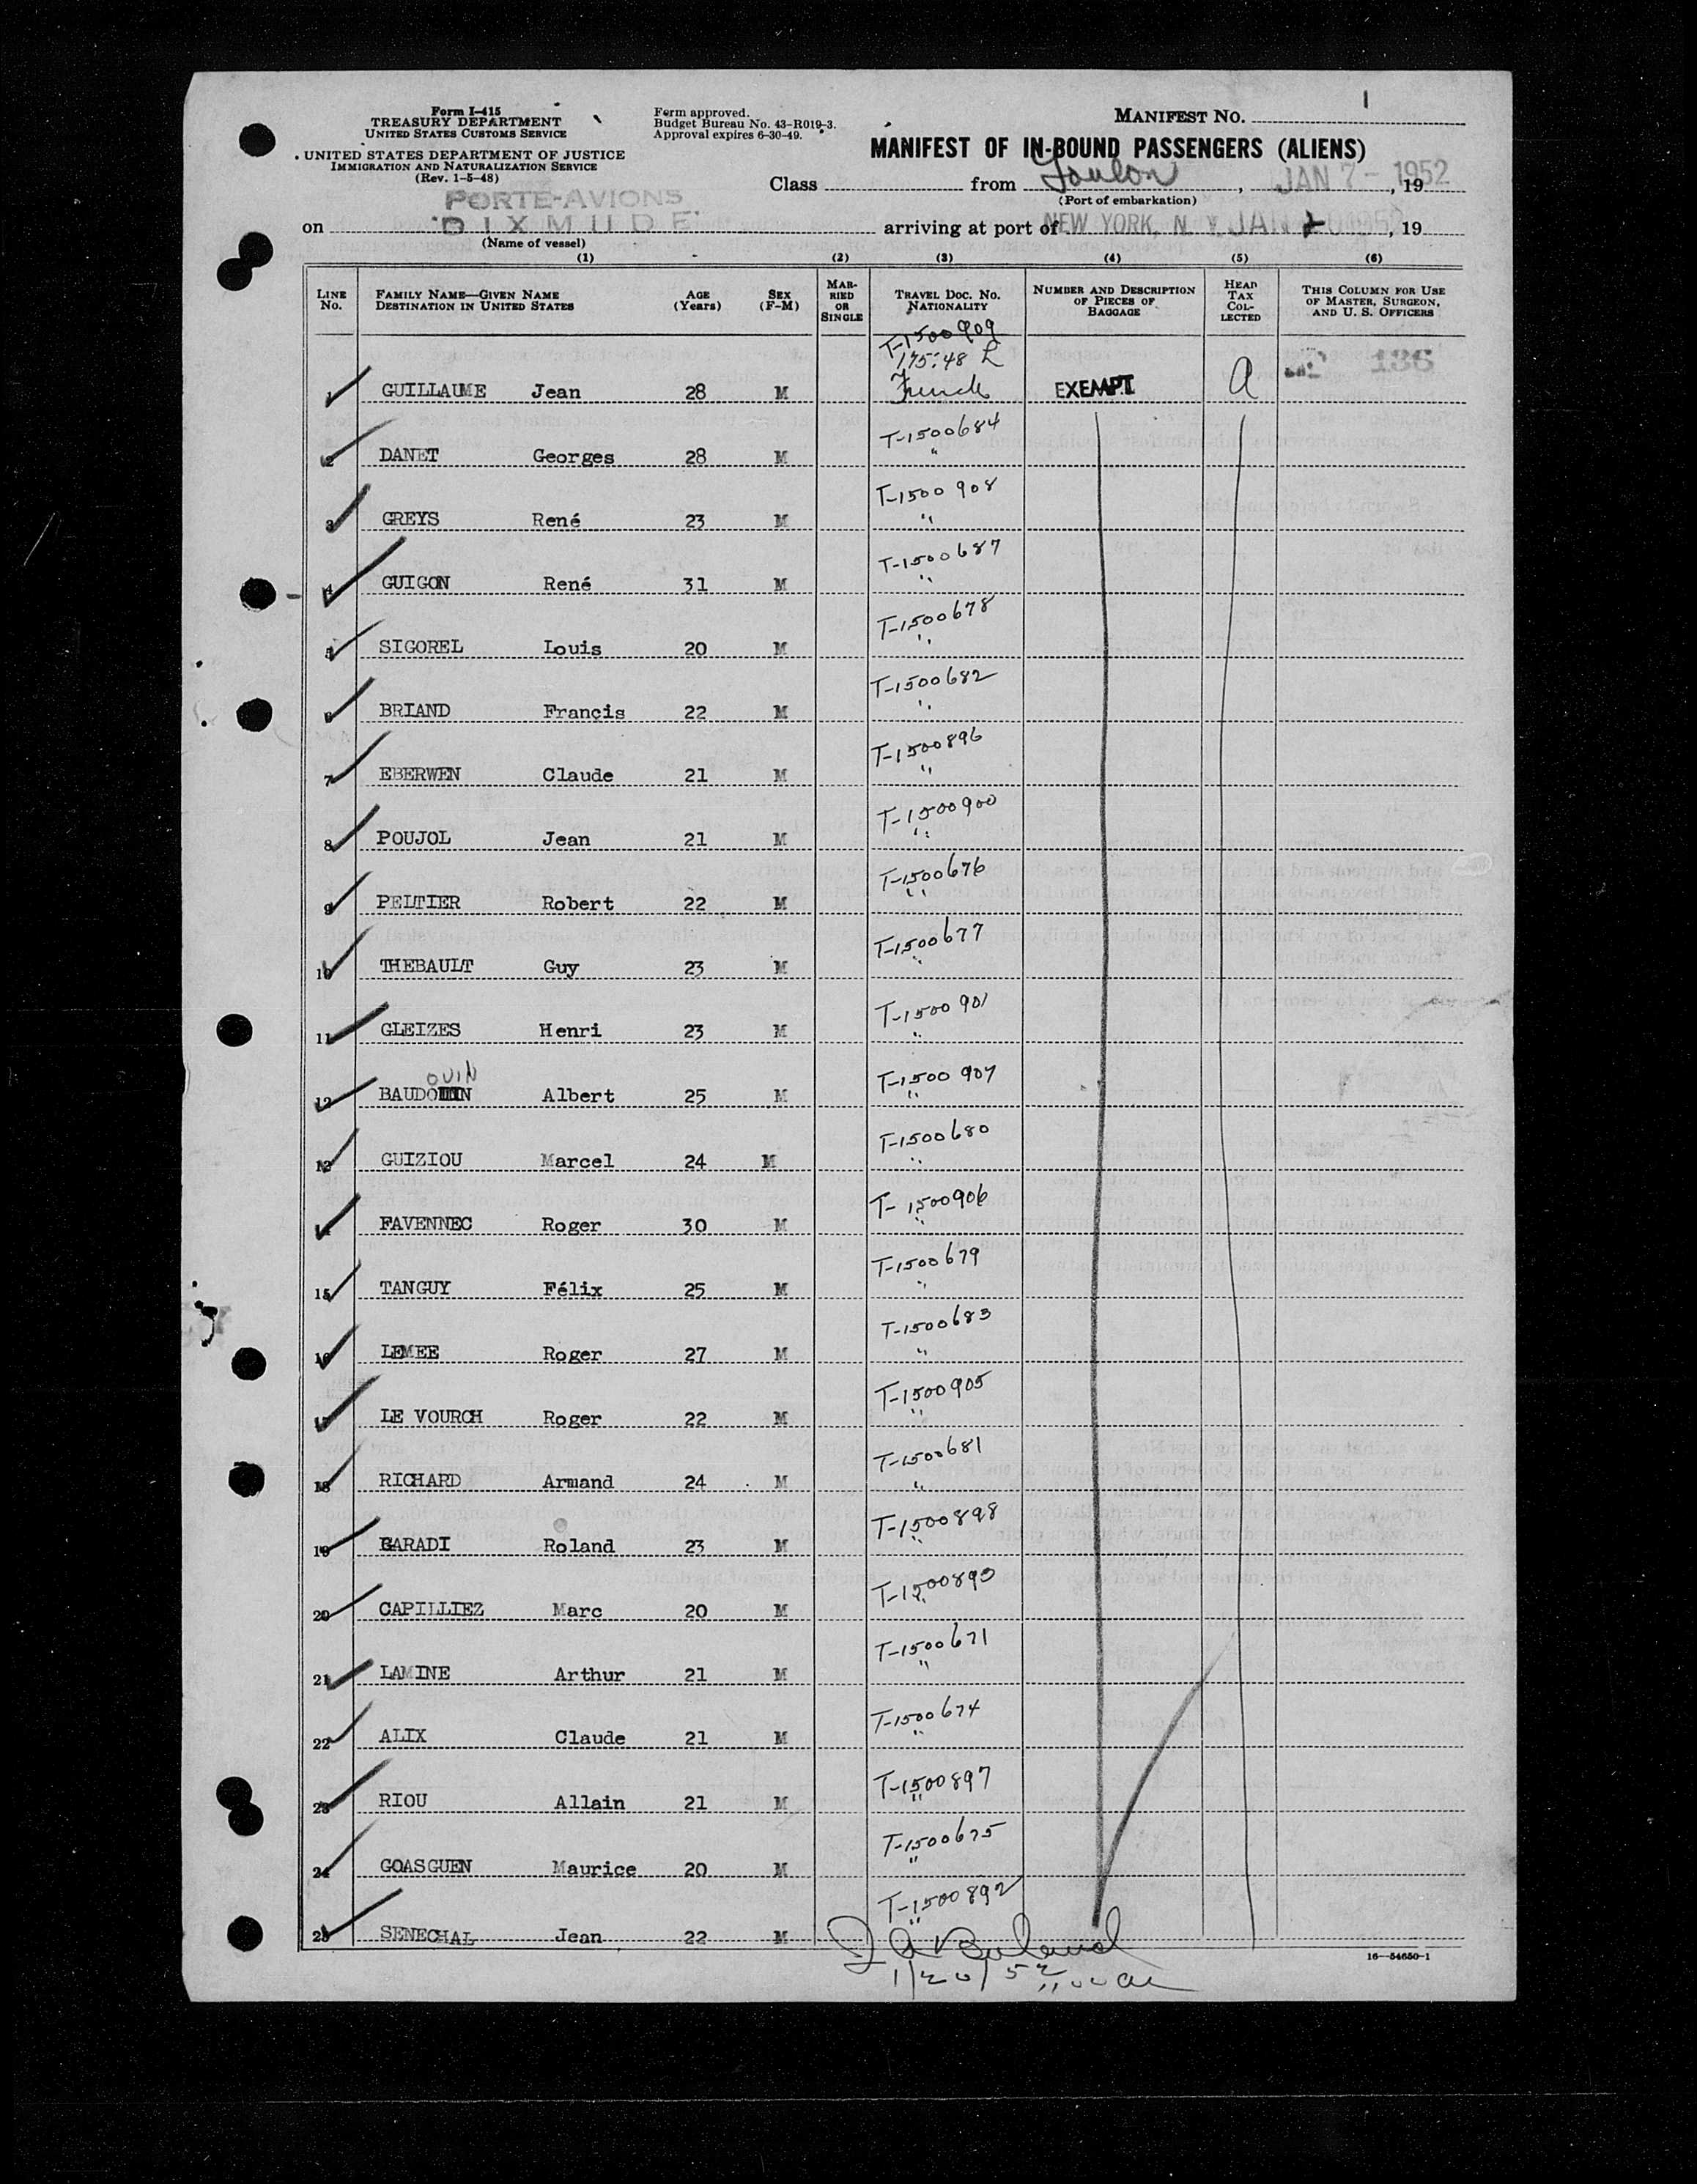 Form I-415
TREASURY DEPARTMENT
UNITED STATES CUSTOMS SERVICE
UNITED STATES DEPARTMENT OF JUSTICE
IMMIGRATION AND NATURALIZATION SERVICE
(Rev. 1-5-48)
Form approved.
Budget Bureau No. 43-R019-3.
Approval expires 6-30-49.
MANIFEST NO. 1
MANIFEST OF IN-BOUND PASSENGERS (ALIENS)
Class from Toulon, JAN 7 - 1952, 19
(Port of embarkation)
PORTE-AVIONS
on DIXMUDE arriving at port of NEW YORK, N. Y. JAN, 19
(Name of vessel)
(1) (2) (3) (4) (5) (6)
LINE No. FAMILY NAME—GIVEN NAME DESTINATION IN UNITED STATES AGE (Years) SEX (F-M) MARRIED OR SINGLE TRAVEL DOC. NO. NATIONALITY NUMBER AND DESCRIPTION OF PIECES OF BAGGAGE HEAD TAX COLLECTED THIS COLUMN FOR USE OF MASTER, SURGEON, AND U. S. OFFICERS
T-1500909
1 GUILLAUME Jean 28 M French EXEMPT a 136
2 DANET Georges 28 M T-1500684 "
3 GREYS René 23 M T-1500908 "
4 GUIGON René 31 M T-1500687 "
5 SIGOREL Louis 20 M T-1500678 "
6 BRIAND Francis 22 M T-1500682 "
7 EBERWEN Claude 21 M T-1500896 "
8 POUJOL Jean 21 M T-1500900 "
9 PELTIER Robert 22 M T-1500676 "
10 THEBAULT Guy 23 M T-1500677 "
11 GLEIZES Henri 23 M T-1500901 "
OUIN
12 BAUDOIN Albert 25 M T-1500907 "
13 GUIZIOU Marcel 24 M T-1500680 "
14 FAVENNEC Roger 30 M T-1500906 "
15 TANGUY Félix 25 M T-1500679 "
16 LEMEE Roger 27 M T-1500683 "
17 LE VOURCH Roger 22 M T-1500905 "
18 RICHARD Armand 24 M T-1500681 "
19 BARADI Roland 23 M T-1500898 "
20 CAPILLIEZ Marc 20 M T-1500893 "
21 LAMINE Arthur 21 M T-1500671 "
22 ALIX Claude 21 M T-1500674 "
23 RIOU Allain 21 M T-1500897 "
24 GOASGUEN Maurice 20 M T-1500675 "
25 SENECHAL Jean 22 M T-1500892 "
1/20/52
16—54650-1